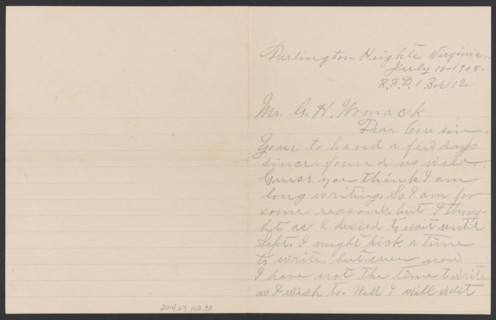 Darlington Heights Virginia.
July 10-1908.
R.F.D. 1 Box 12
Mr. G. H. Womack
Dear Cousin.
Your to hand a few days
since found us well.
Guess you think I am
long writing. So I am for
some reasons but I thoug
ht as I desired to wait until
Sept. I might pick a time
to write but even now
I have not the time to write
as I wish to. Well I will